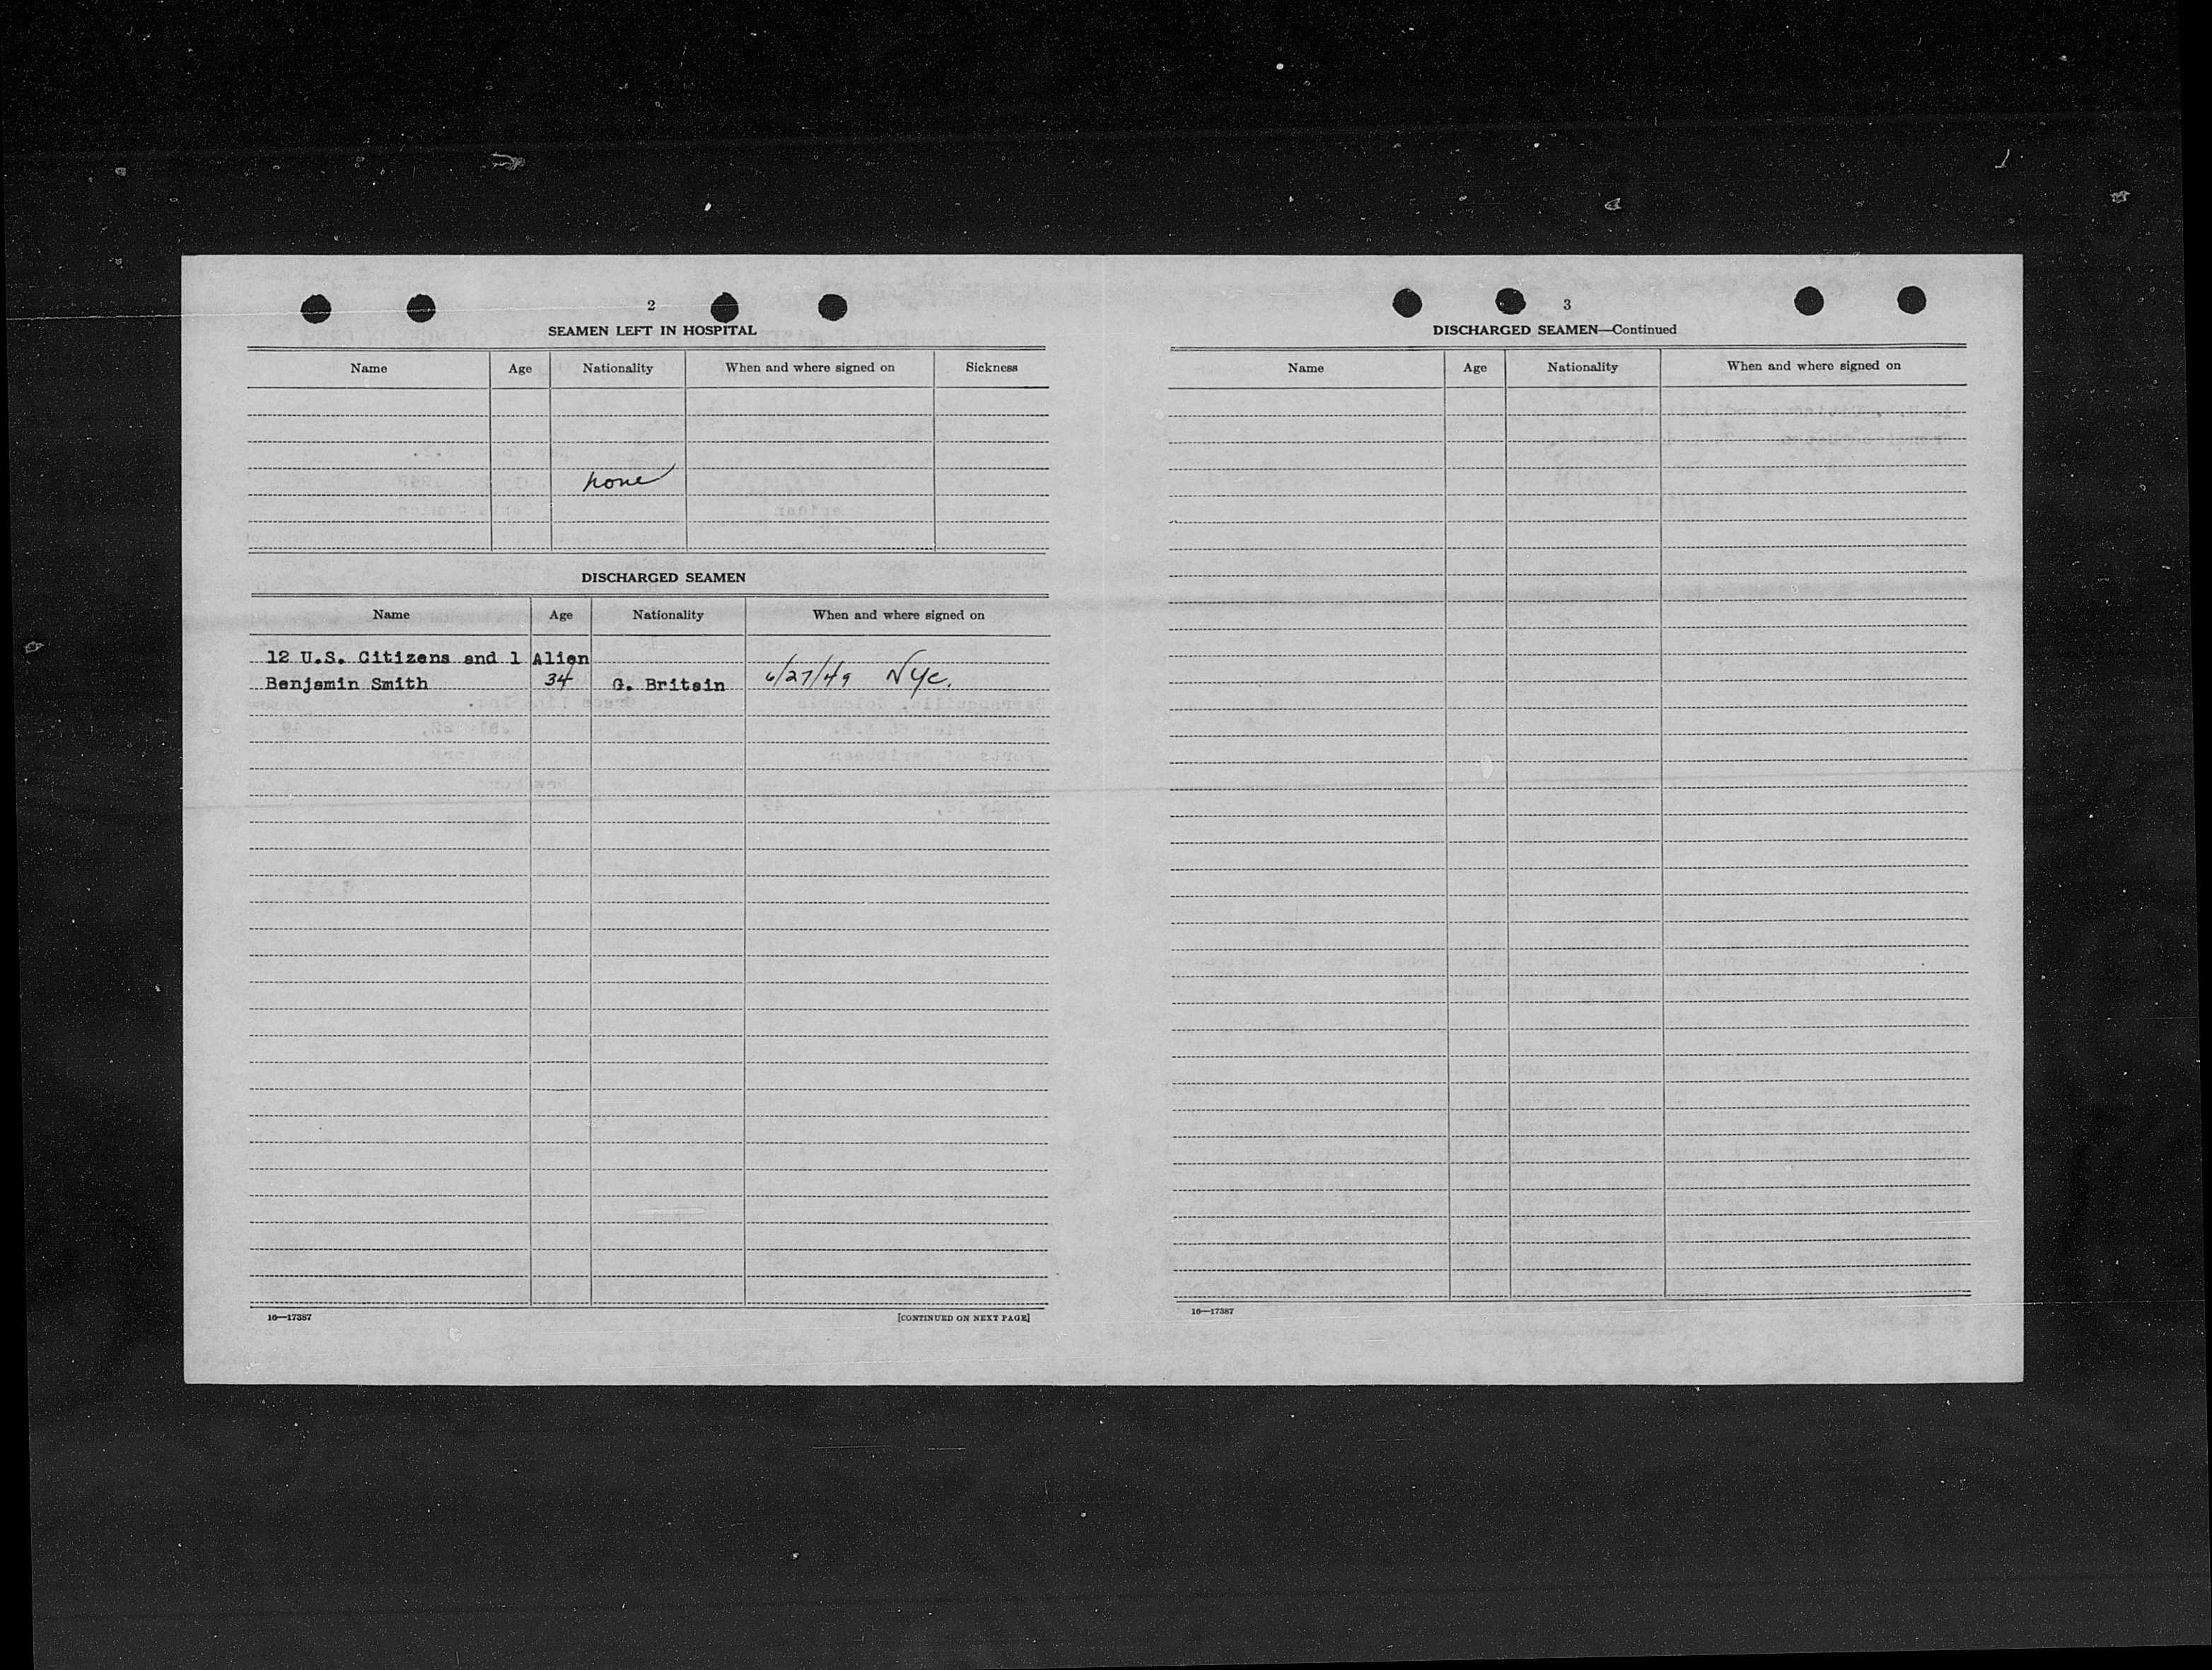 2
SEAMEN LEFT IN HOSPITAL
Name Age Nationality When and where signed on Sickness
none
DISCHARGED SEAMEN
Name Age Nationality When and where signed on
12 U.S. Citizens and 1 Alien
Benjamin Smith 34 G. Britain 6/27/49 NYC.
16—17387 [CONTINUED ON NEXT PAGE]
3
DISCHARGED SEAMEN—Continued
Name Age Nationality When and where signed on
16—17387